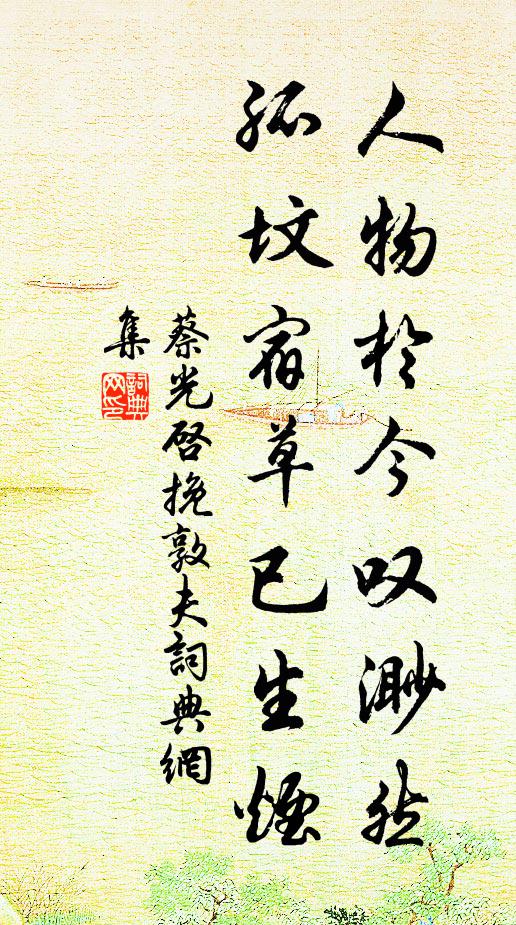 人物於今叹渺然
孤坟宿草已生烟
蔡光启挽敦夫詞典網
集
詞典
网印